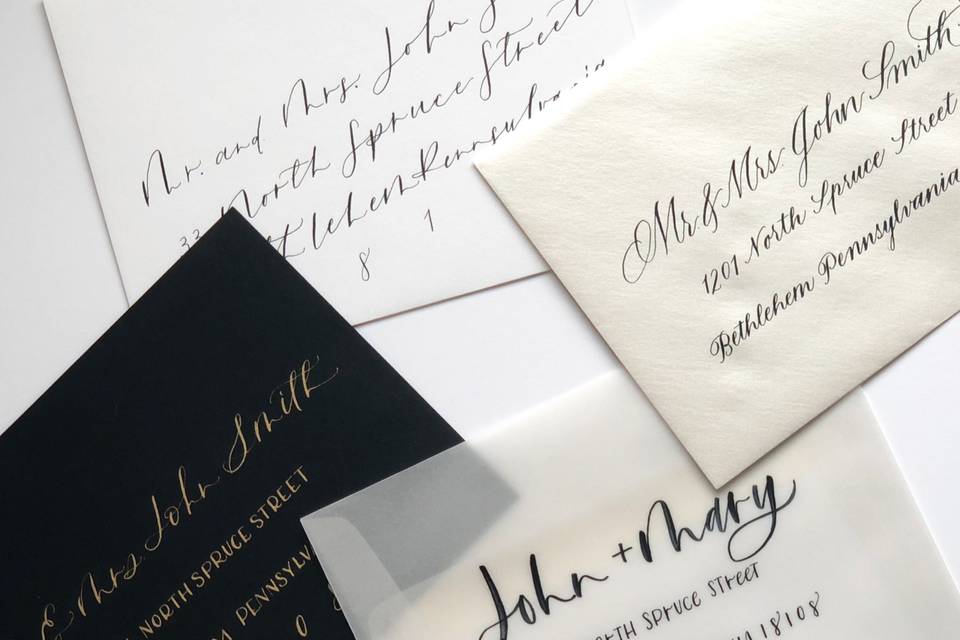 Mr. and Mrs. John S
North Spruce Street
Pennsylvania
8 1
Mr. & Mrs. John Smith
1201 North Spruce Street
Bethlehem Pennsylvania
& Mrs John Smith
NORTH SPRUCE STREET
PENNSYLV
0
John + Mary
SPRUCE STREET
18108